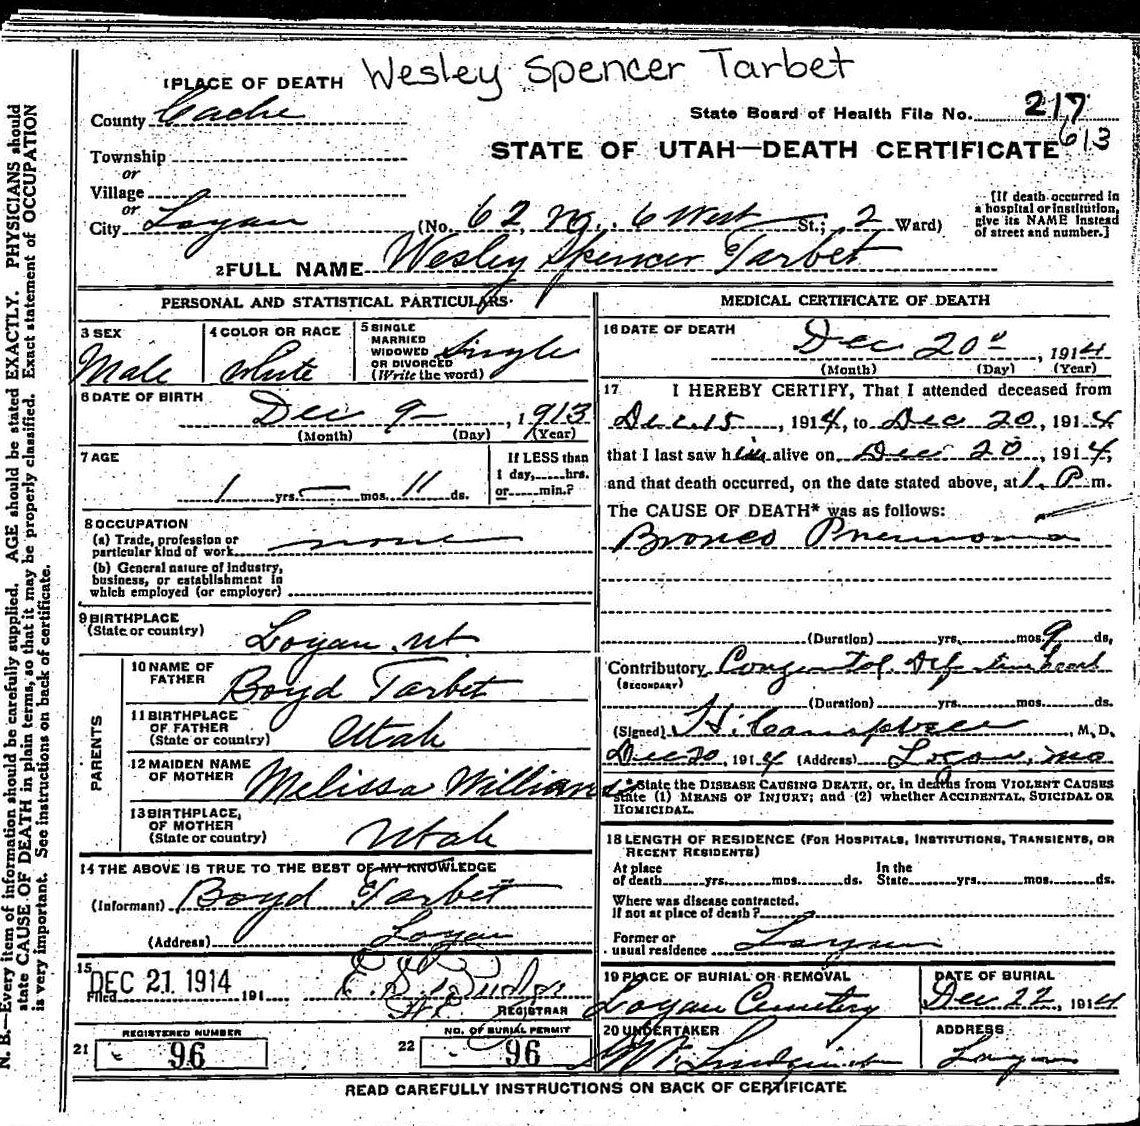 Wesley Spencer Tarbet
1 PLACE OF DEATH
County Cache
State Board of Health File No. 217
613
STATE OF UTAH—DEATH CERTIFICATE
Township
or
Village
or
City Logan
(No. 62, No. 6 West St.; 2 Ward)
[If death occurred in a hospital or institution, give its NAME instead of street and number.]
2 FULL NAME Wesley Spencer Tarbet
PERSONAL AND STATISTICAL PARTICULARS
3 SEX
Male
4 COLOR OR RACE
White
5 SINGLE
MARRIED
WIDOWED
OR DIVORCED
(Write the word)
Single
6 DATE OF BIRTH
Dec 9 , 1913
(Month) (Day) (Year)
7 AGE
1 yrs. — mos. 11 ds.
If LESS than
1 day,.....hrs.
or.....min.?
8 OCCUPATION
(a) Trade, profession or
particular kind of work none
(b) General nature of industry,
business, or establishment in
which employed (or employer)
9 BIRTHPLACE
(State or country)
Logan, Ut
PARENTS
10 NAME OF
FATHER
Boyd Tarbet
11 BIRTHPLACE
OF FATHER
(State or country)
Utah
12 MAIDEN NAME
OF MOTHER
Melissa Williams
13 BIRTHPLACE
OF MOTHER
(State or country)
Utah
14 THE ABOVE IS TRUE TO THE BEST OF MY KNOWLEDGE
(Informant) Boyd Tarbet
(Address) Logan
15
Filed DEC 21 1914 , 191
REGISTRAR
REGISTERED NUMBER
21 96
NO. OF BURIAL PERMIT
22 96
MEDICAL CERTIFICATE OF DEATH
16 DATE OF DEATH
Dec 20 , 1914
(Month) (Day) (Year)
17 I HEREBY CERTIFY, That I attended deceased from
Dec 15 , 1914, to Dec 20 , 1914
that I last saw him alive on Dec 20 , 1914,
and that death occurred, on the date stated above, at 1. P m.
The CAUSE OF DEATH* was as follows:
Bronco Pneumonia
(Duration) yrs. mos. 9 ds.
Contributory Congental Defective heart
(SECONDARY)
(Duration) yrs. mos. ds.
(Signed) , M. D.
Dec 20, 1914 (Address) Logan,
*State the DISEASE CAUSING DEATH, or, in deaths from VIOLENT CAUSES
state (1) MEANS OF INJURY; and (2) whether ACCIDENTAL, SUICIDAL OR
HOMICIDAL.
18 LENGTH OF RESIDENCE (FOR HOSPITALS, INSTITUTIONS, TRANSIENTS, OR
RECENT RESIDENTS)
At place
of death.....yrs.....mos.....ds.
In the
State.....yrs.....mos.....ds.
Where was disease contracted.
if not at place of death?
Former or
usual residence Logan
19 PLACE OF BURIAL OR REMOVAL
Logan Cemetery
DATE OF BURIAL
Dec 22, 1914
20 UNDERTAKER
ADDRESS
Logan
READ CAREFULLY INSTRUCTIONS ON BACK OF CERTIFICATE
N. B.—Every item of information should be carefully supplied. AGE should be stated EXACTLY. PHYSICIANS should
state CAUSE OF DEATH in plain terms, so that it may be properly classified. Exact statement of OCCUPATION
is very important. See instructions on back of certificate.